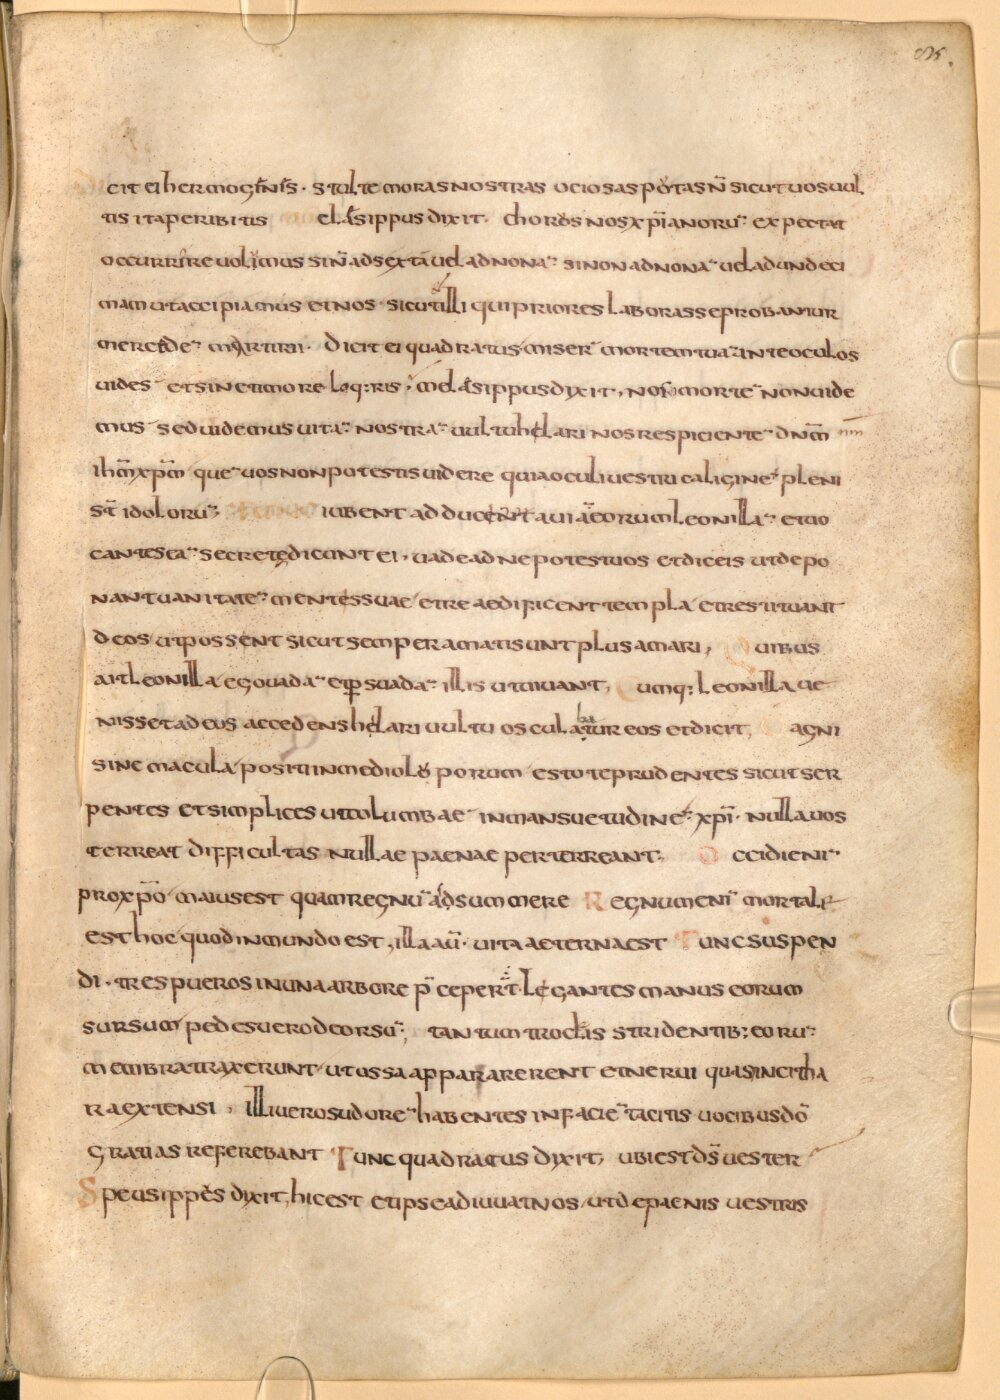 cit ei hermogenis · stulte moras nostras ociosas putas n̄ sicut vos vul
tis ita peribitis elasippus dixit · choros nos xp̄ianorū expectat
occurrere volumus sin̄ ad sextā vel ad nonā · si non ad nonā vel ad undeci
mam ut accipiamus et nos · sicut illi qui priores laborasse probantur
mercedē martirii · Dicit ei quadratus · miser mortem tuā ante oculos
vides et sine timore loq:ris · melasippus dixit , nos mortē non vide
mus sed videmus vitā nostrā vultu helari nos respicientē dn̄m nrm
ihm̄ xpm̄ quē vos non potestis videre quia oculi vestri caligine pleni
st̄ idolorū · iubent adducent aviā eorum leonillā et vo
cantes eā secrete dicunt ei , vade ad nepotes tuos et dices ut depo
nant vanitatē mentes suae et reaedificent templa et restituant
deos ut possent sicut semper amati sunt plus amari , Quibus
ait leonilla ego vadā et p̱suadā illis ut vivant , Cumq: leonilla ve
nisset ad eos accedens helari vultu osculabatur eos et dicit , Magni
sine macula positi in medio luporum estote prudentes sicut ser
pentes et simplices ut columbae in mansuetudine xp̄i · nulla vos
terreat difficultas nullae paenae perterreant , Occidi enī
pro xp̄o maius est quam regnū adsummere Regnum enī mortale
est hoc quod in mundo est , illa aū · vita aeterna est Tunc suspen
di · tres pueros in una arbore p̄ceper̄t · Legantes manus eorum
sursum pedes vero deorsū ; tantum trocleis stridentib; eorū
membra traxerunt ut ossa appararerent et nervi quasi in citha
ra extensi , illi vero sudorē habentes in faciē tacitis vocibus dō
gratias referebant Tunc quadratus dixit , ubi est ds̄ vester
Speusippes dixit , hic est et ipse adiuvat nos ut de paenis vestris